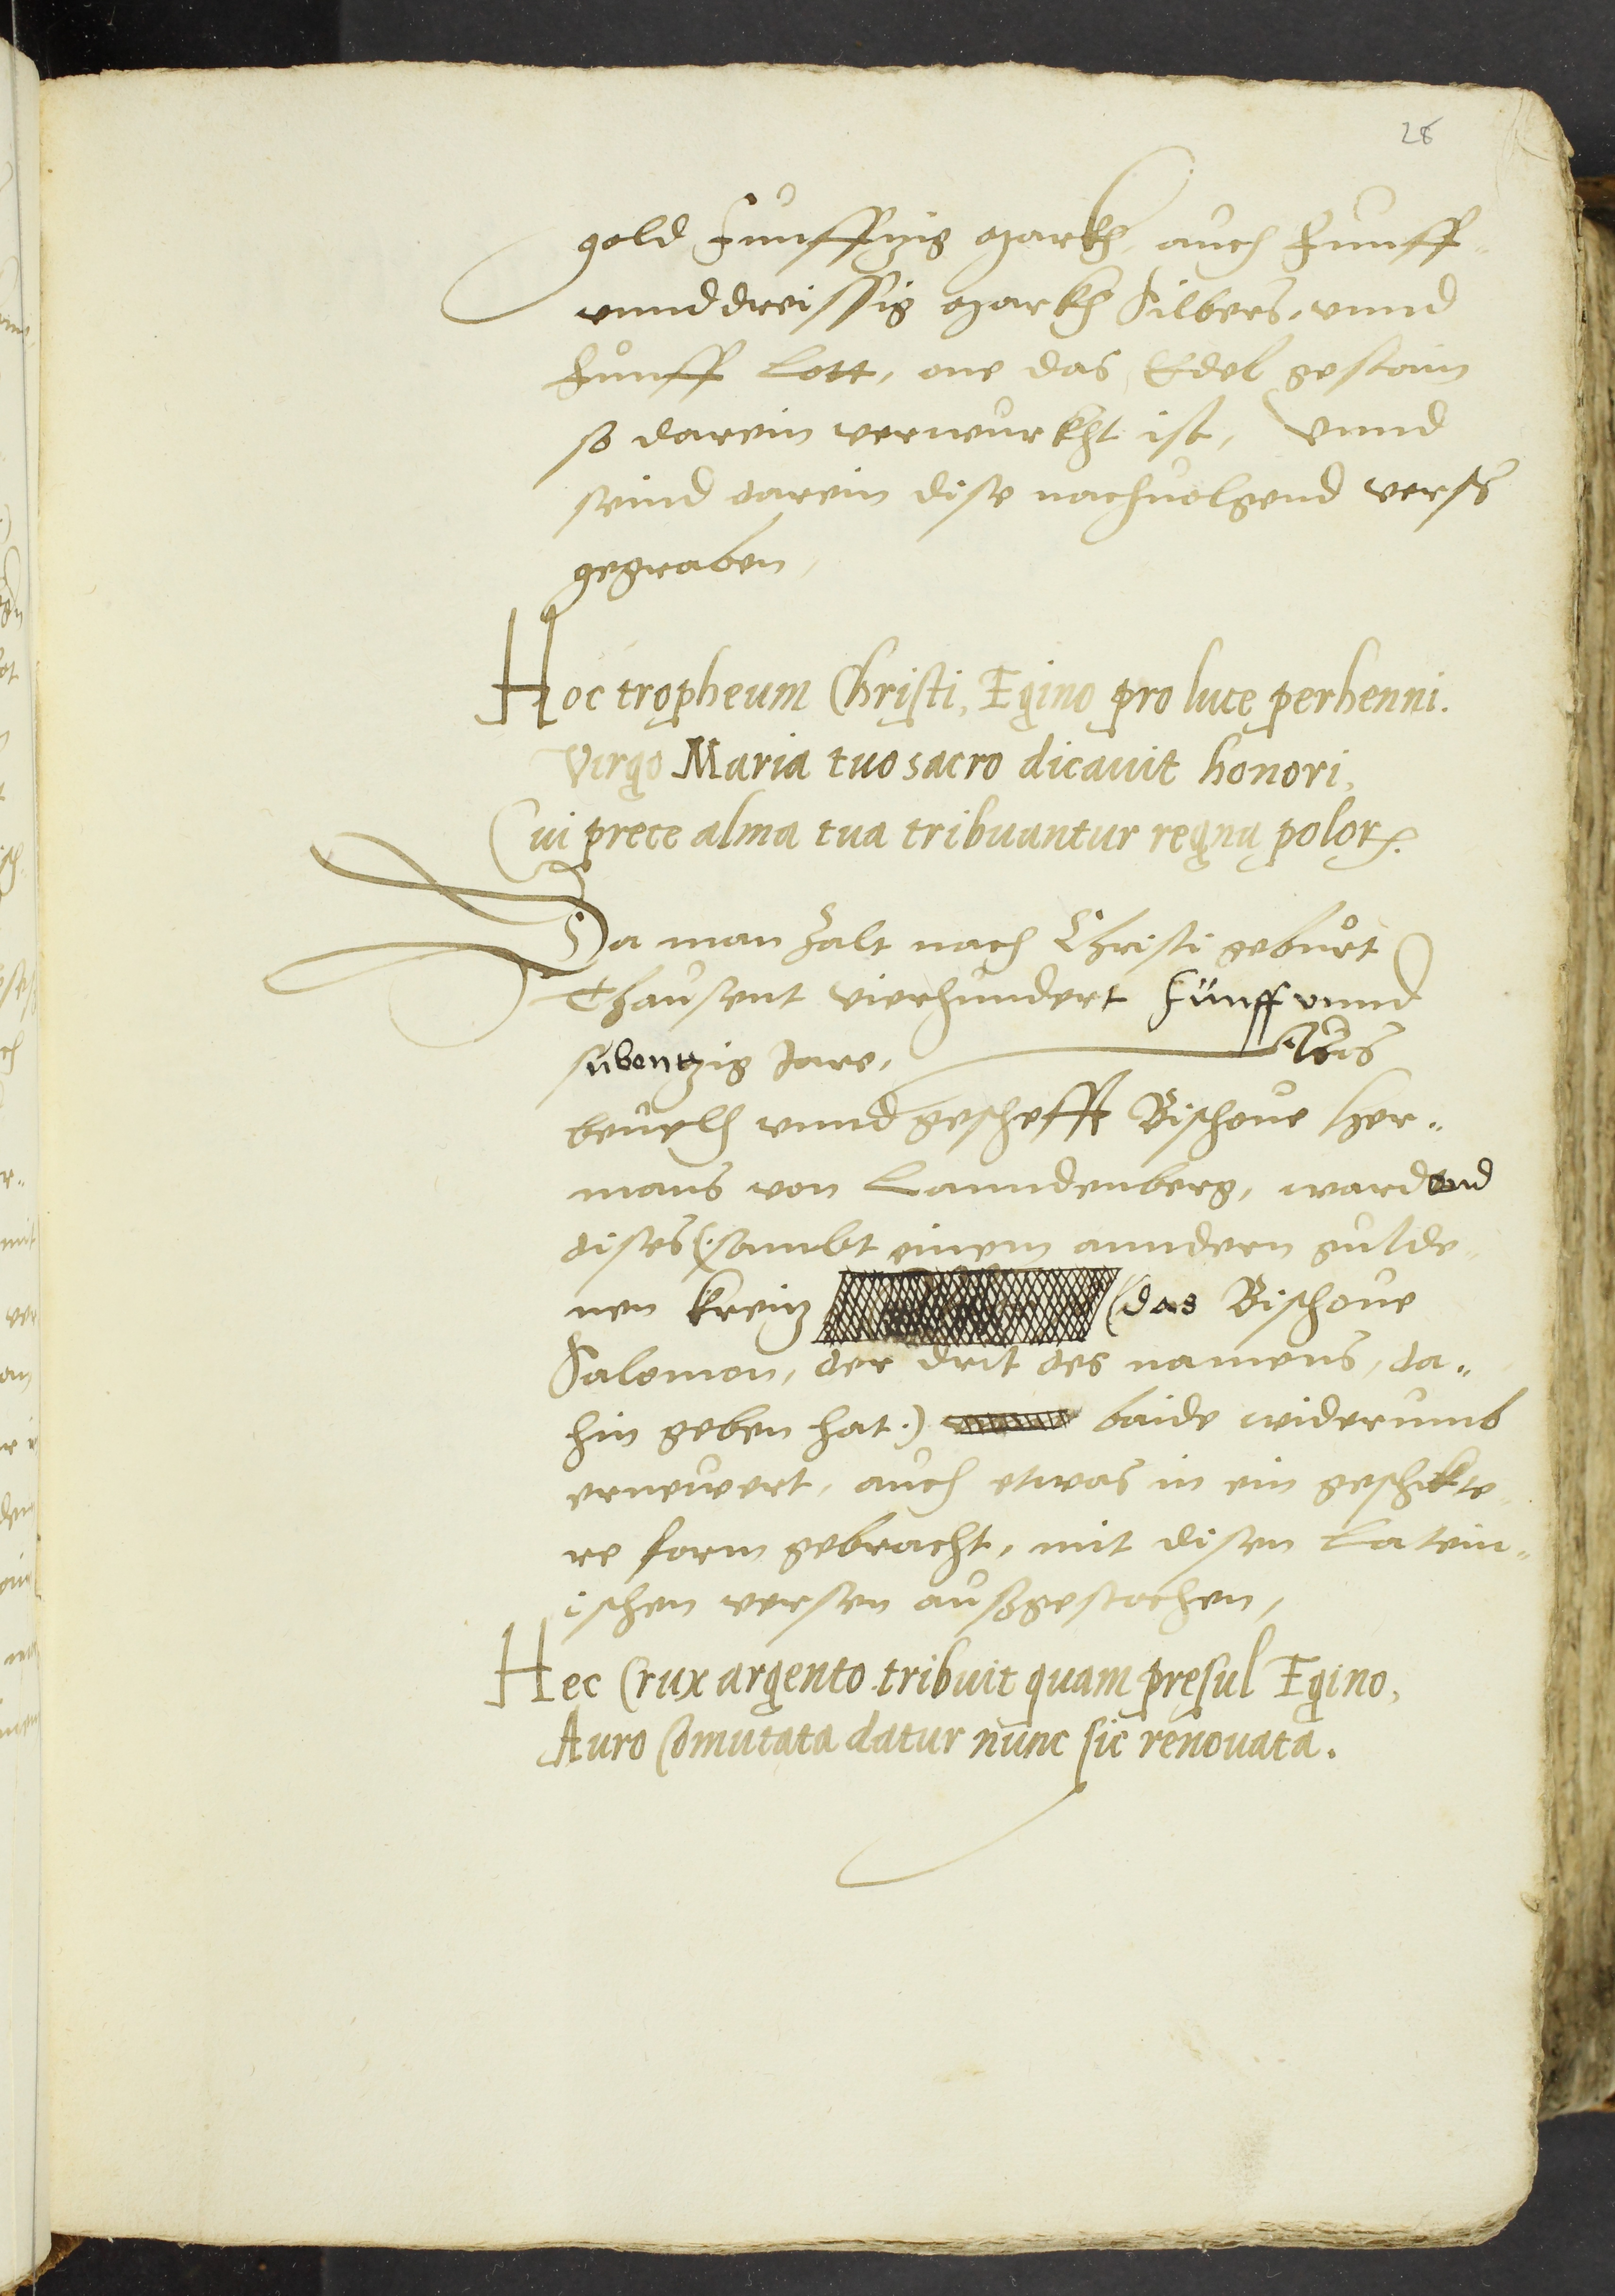 28
gold Funffzig Markh, auch Funff-
vnnd dreissig Markh Silbers, vnnd
Fůnff Lott, one das Edel gestain
so darein verwurkht ist, Vnnd
seind darein dise nachuolgend verss
gegraben,
Hoc tropheum Christi, Egino pro luce perhenni.
Virgo Maria tuo sacro dicauit honori,
Cui prece alma tua tribuantur regna polorꝝ.
Da man zalt nach Christi gebůrt
Thausent vierhundert Fünff vnnd
sübentzig Jare, Aus
beuelh vnnd gescheft Bischoue Her-
mans von Lanndenberg, ward
dises (sambt einem anndern gulde-
nen kreitz (das Bischoue
Salomon, der drit des namens, da-
hin geben hat.) baide widerumb
ernewert, auch etwas in ein geschikte-
re form gebracht, mit disen Latein-
ischen versen außgestochen,
Hec Crux argento tribuit quam presul Egino,
Auro Comutata datur nunc sic renouata.